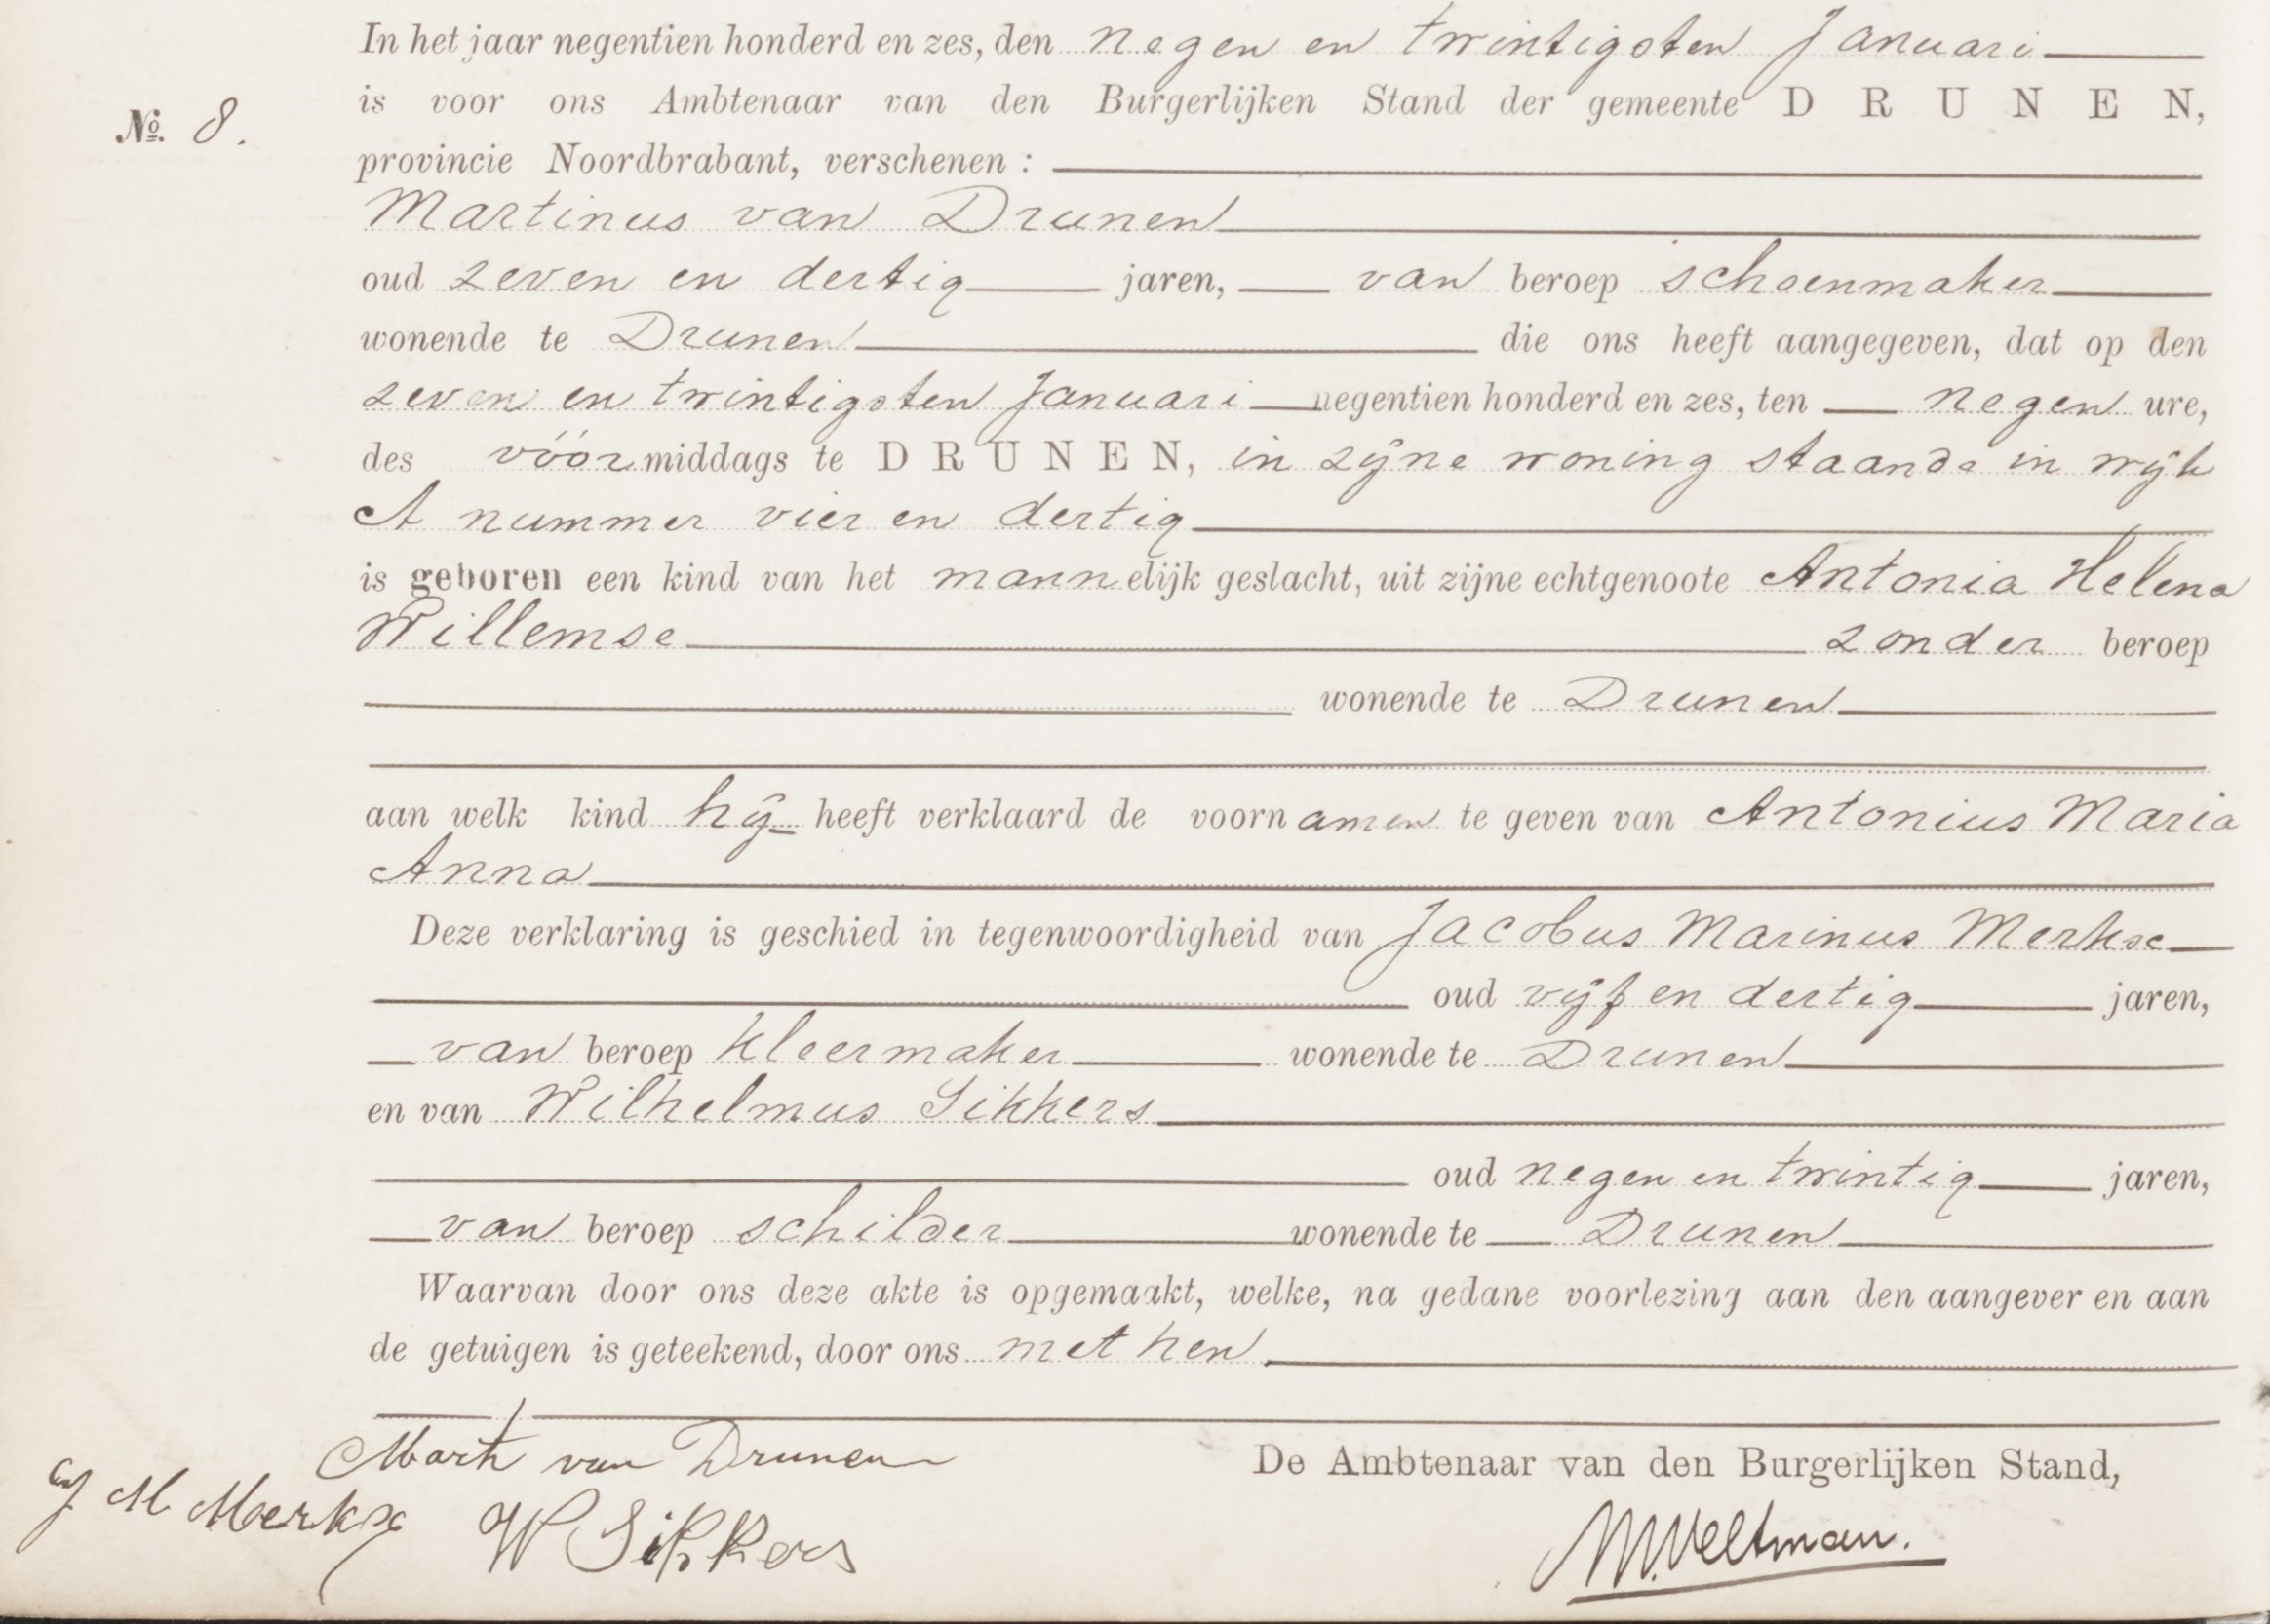 In het jaar negentien honderd en zes, den negen en twintigsten Januari
is voor ons Ambtenaar van den Burgerlijken Stand der gemeente D R U N E N,
No. 8.
provincie Noordbrabant, verschenen :
Martinus van Drunen
oud zeven en dertig jaren, van beroep schoenmaker
wonende te Drunen die ons heeft aangegeven, dat op den
zeven en twintigsten Januari negentien honderd en zes, ten negen ure,
des vóór middags te D R U N E N, in zijne woning staande in wijk
A nummer vier en dertig
is geboren een kind van het mannelijk geslacht, uit zijne echtgenoote Antonia Helena
Willemse zonder beroep
wonende te Drunen
aan welk kind hij heeft verklaard de voornamen te geven van Antonius Maria
Anna
Deze verklaring is geschied in tegenwoordigheid van Jacobus Marinus Merkse
oud vijf en dertig jaren,
van beroep kleermaker wonende te Drunen
en van Wilhelmus Sikkers
oud negen en twintig jaren,
van beroep schilder wonende te Drunen
Waarvan door ons deze akte is opgemaakt, welke, na gedane voorlezing aan den aangever en aan
de getuigen is geteekend, door ons met hen.
Mart van Drunen
De Ambtenaar van den Burgerlijken Stand,
J M Merkx
W Sikkers
M.Veltman.